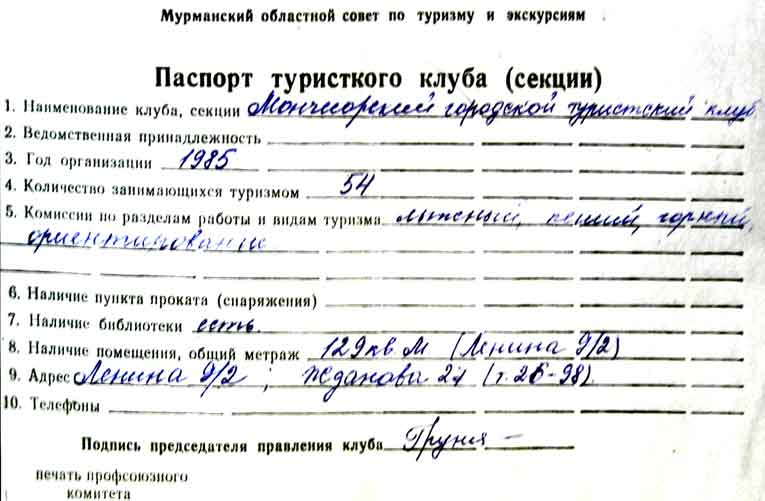 Мурманский областной совет по туризму и экскурсиям
Паспорт туристкого клуба (секции)
1. Наименование клуба, секции Мончегорский городской туристский клуб
2. Ведомственная принадлежность
3. Год организации 1985
4. Количество занимающихся туризмом 54
5. Комиссии по разделам работы и видам туризма лыжный, пеший, горный,
ориентирование
6. Наличие пункта проката (снаряжения)
7. Наличие библиотеки есть.
8. Наличие помещения, общий метраж 129 кв. м (Ленина 9/2)
9. Адрес Ленина 9/2; Жданова (т. 98)
10. Телефоны
Подпись председателя правления клуба
печать профсоюзного
комитета